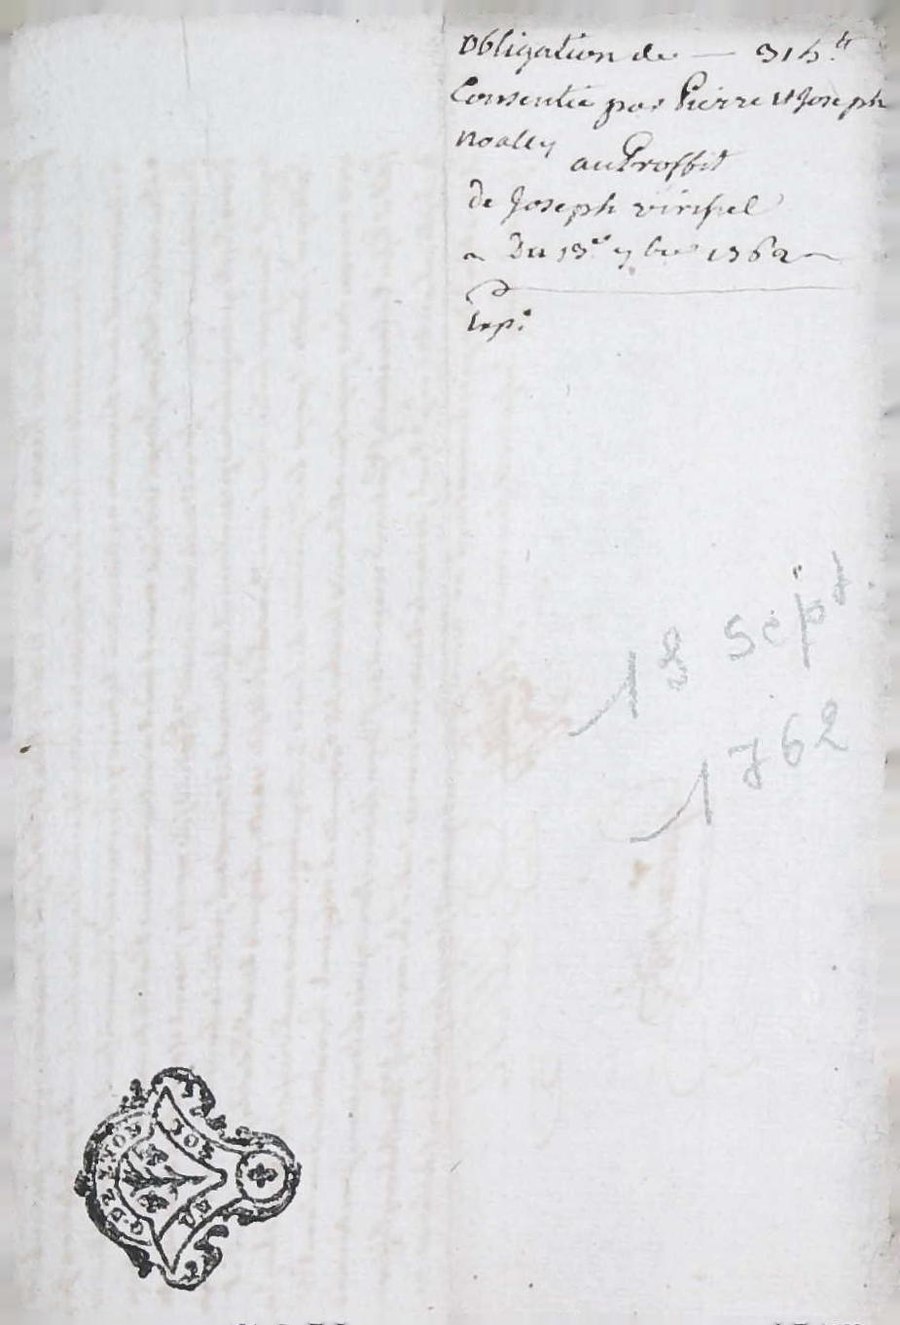 Obligation de — 315.tt
Consentie par Pierre et Joseph
noally
au Proffit
de Joseph
Du 13e 7bre 1762
Exp.e
18 Sept.
1762